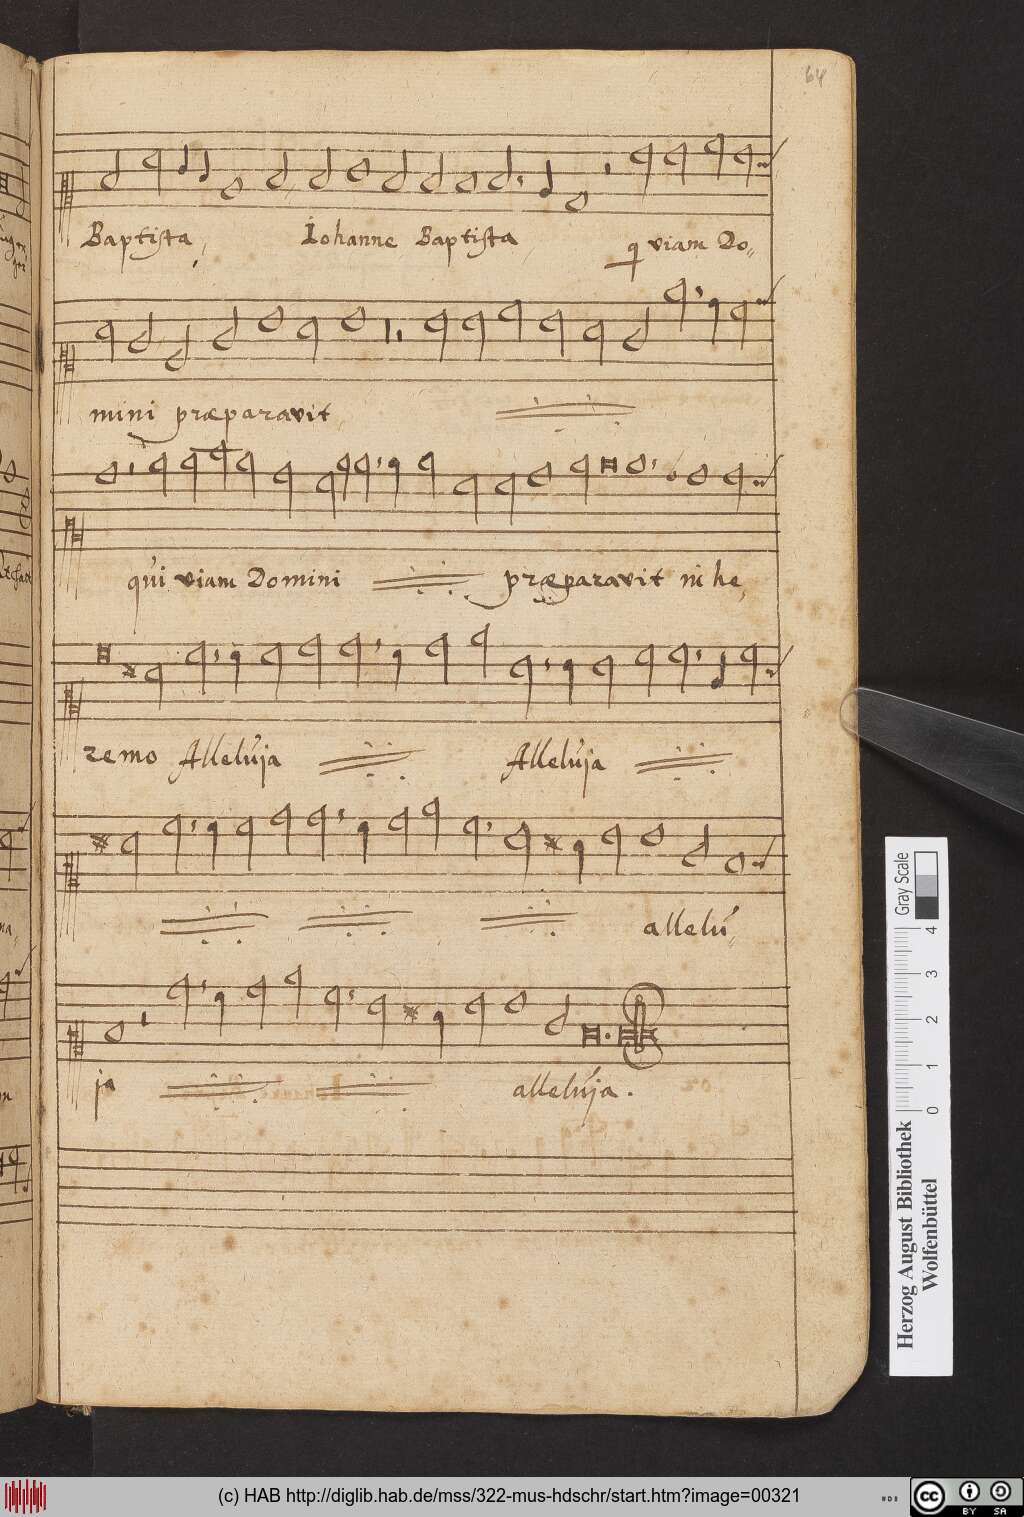 64
Baptista, Iohanne Baptista q viam Do-
mini præparavit
qui viam Domini præparavit in he-
remo Alleluja Alleluja
allelu-
ja alleluja.
Gray Scale
4 3 2 1 0
Herzog August Bibliothek
Wolfenbüttel
(c) HAB http://diglib.hab.de/mss/322-mus-hdschr/start.htm?image=00321
HAB
cc BY SA